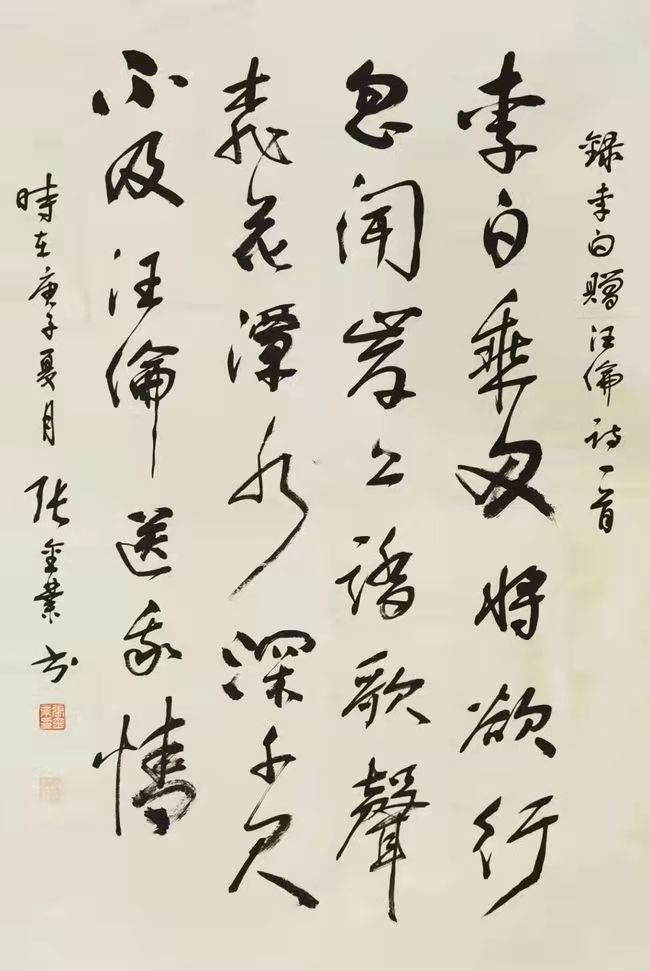 録李白贈汪倫詩一首
李白乘舟將欲行
忽聞岸上踏歌聲
桃花潭水深千尺
不及汪倫送我情
時在庚子夏月
張金業书